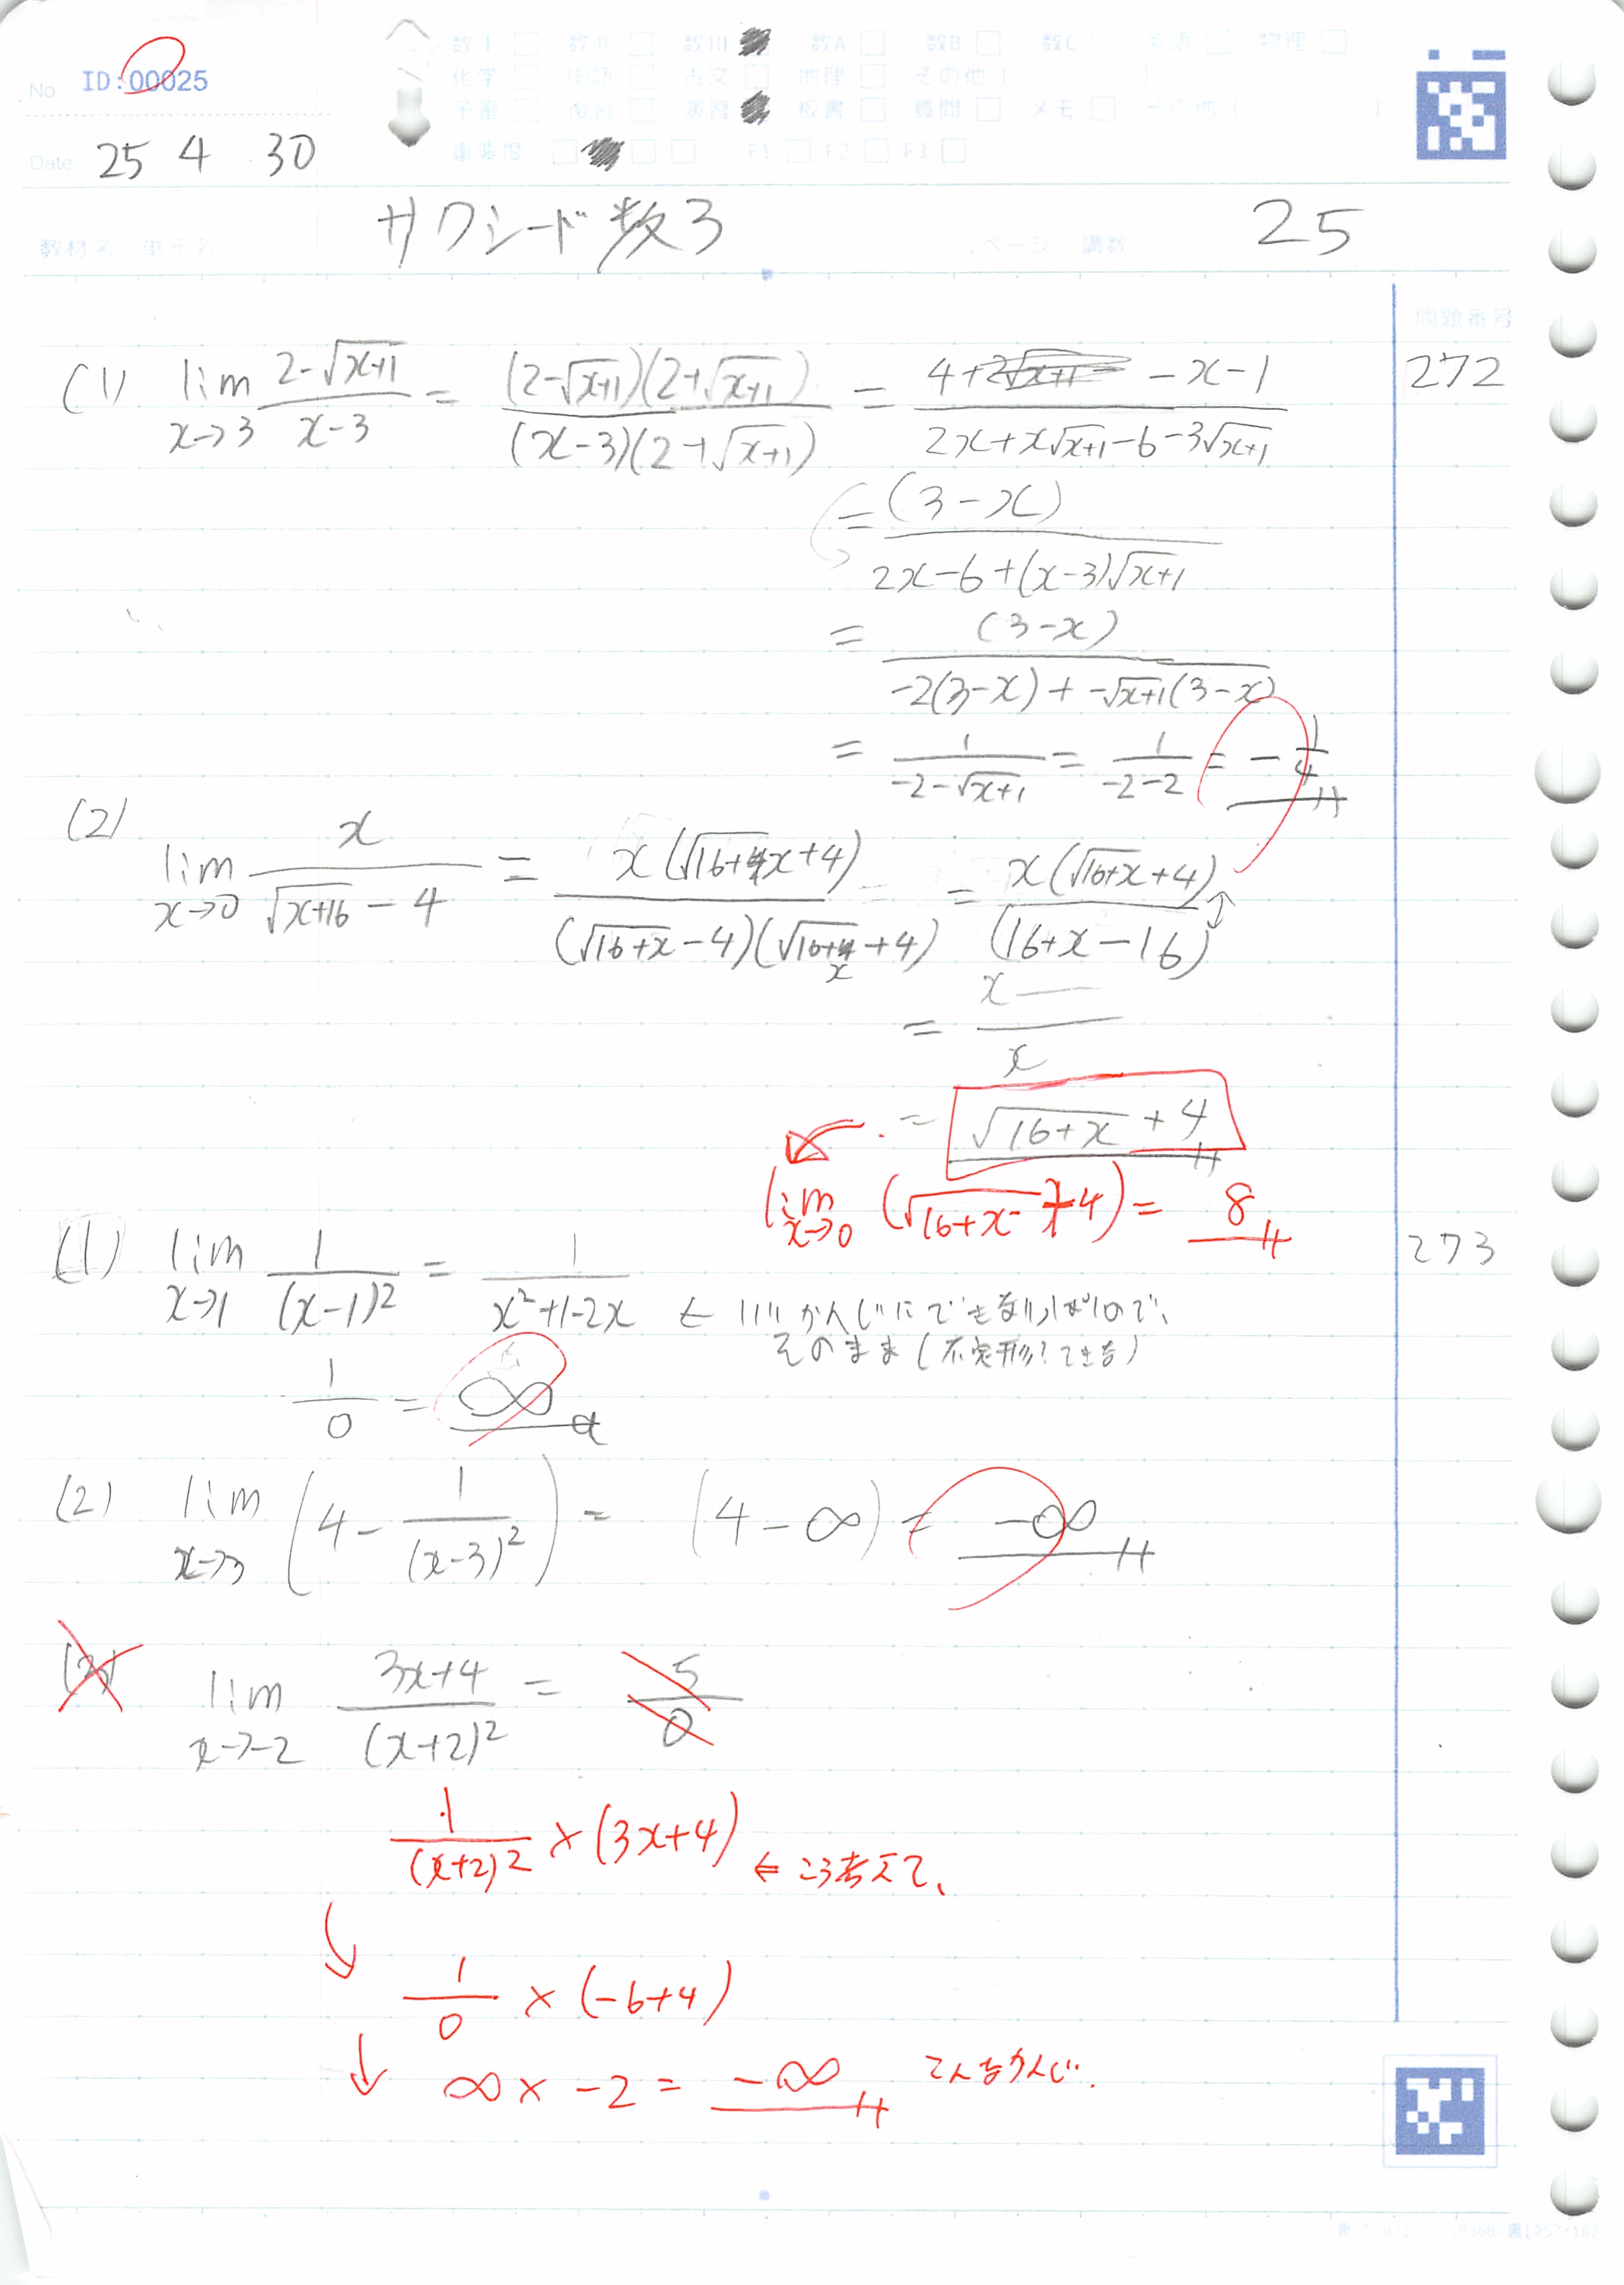 No. ID:00025
数Ⅰ 数Ⅱ 数Ⅲ 数A 数B 数C 英語 物理
化学 国語 古文 地理 その他 [ ]
予習 復習 演習 板書 質問 メモ その他 [ ]
Date 25 4 30
重要度 F1 F2 F3
教材名・単元名 サクシード 数3 ページ・講数 25
問題番号
(1) lim x→3 (2-√(x+1))/(x-3) = ((2-√(x+1))(2+√(x+1)))/((x-3)(2+√(x+1))) = (4+2√(x+1) -x-1)/(2x+x√(x+1)-6-3√(x+1)) 272
= (3-x)/(2x-6+(x-3)√(x+1))
= (3-x)/(-2(3-x)+-√(x+1)(3-x))
= 1/(-2-√(x+1)) = 1/(-2-2) = -1/4
(2) lim x→0 x/(√(x+16)-4) = x(√(16+x)+4)/((√(16+x)-4)(√(16+x)+4)) = x(√(16+x)+4)/(16+x-16)
= x/x
= √(16+x)+4
lim x→0 (√(16+x)+4) = 8
(1) lim x→1 1/(x-1)² = 1/(x²+1-2x) ← いいかんじにできなりっぽいので、 273
そのまま(不定形?できな)
1/0 = ∞
(2) lim x→3 (4-1/(x-3)²) = (4-∞) = -∞
(3) lim x→-2 (3x+4)/(x+2)² = 5/0
1/(x+2)² × (3x+4) ← こう考えて、
1/0 × (-6+4)
∞ × -2 = -∞ こんなかんじ.